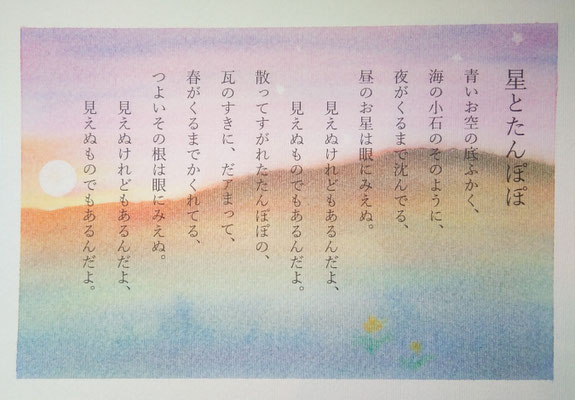 星とたんぽぽ
青いお空の底ふかく、
海の小石のそのように、
夜がくるまで沈んでる、
昼のお星は眼にみえぬ。
見えぬけれどもあるんだよ、
見えぬものでもあるんだよ。
散ってすがれたたんぽぽの、
瓦のすきに、だァまって、
春がくるまでかくれてる、
つよいその根は眼にみえぬ。
見えぬけれどもあるんだよ、
見えぬものでもあるんだよ。